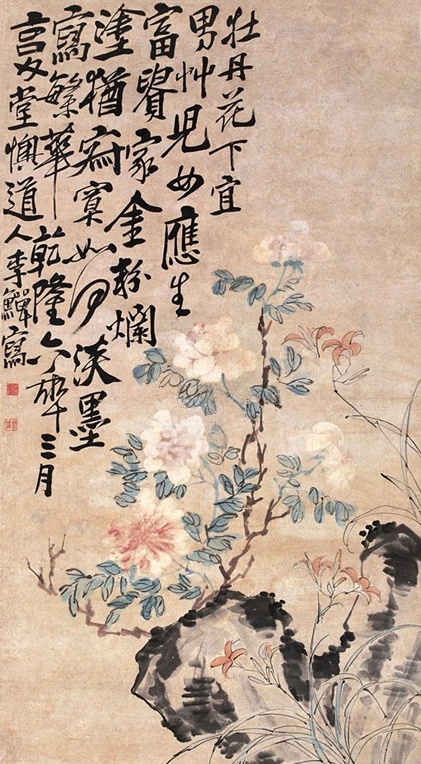 牡丹花下宜
男艸兒女應生
富貴家金粉爛
塗猶寂寞如何淡墨
寫繁華乾隆年三月
复堂懊道人李鱓寫